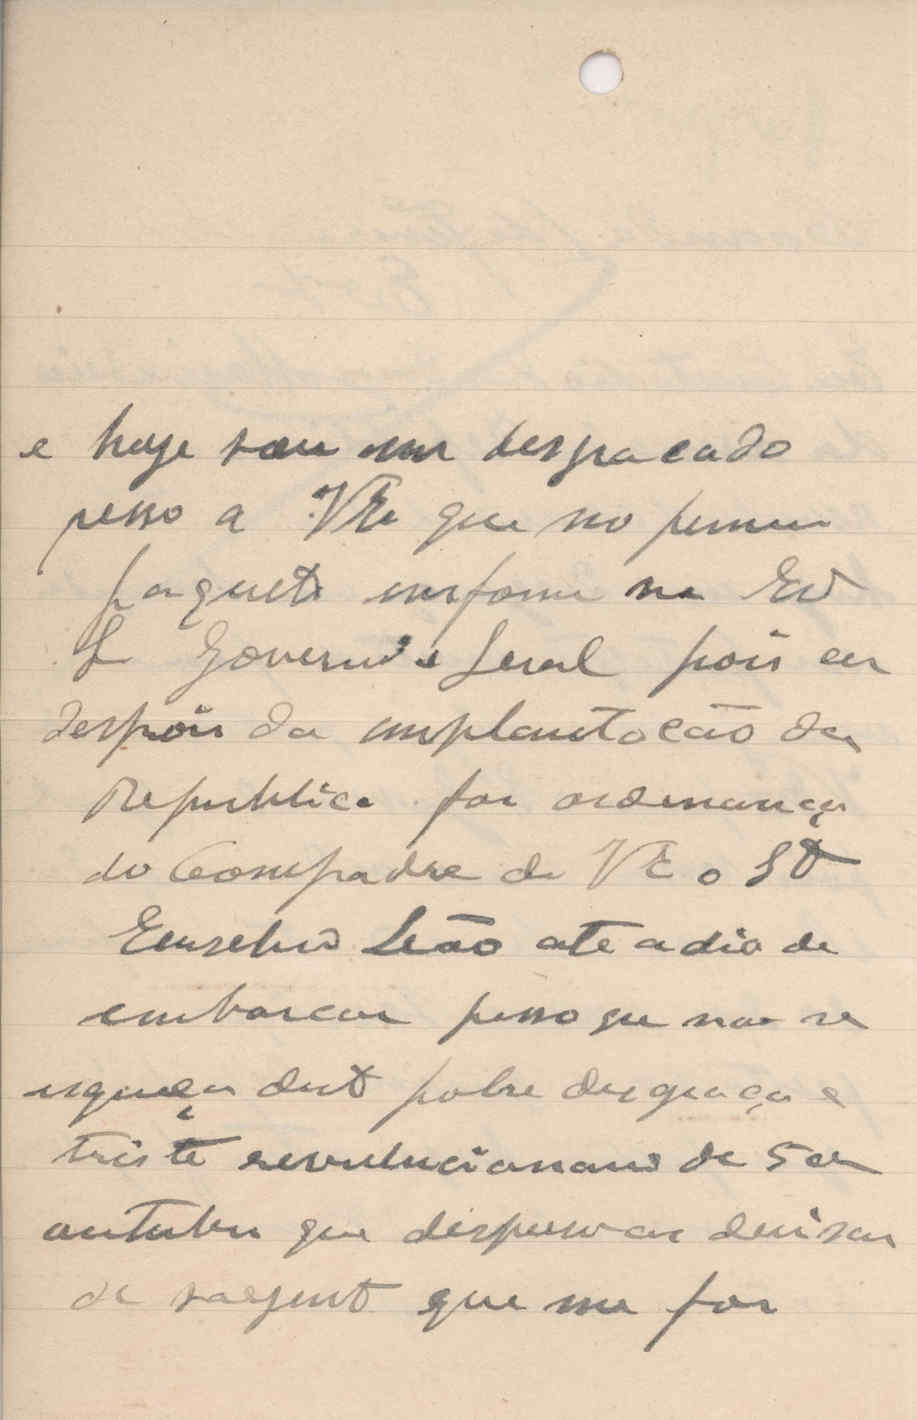 e hoje sou um desgracado
pesso a VEx que no primeiro
paquete imforme na
Governo Geral pois eu
despois da implantacão da
Republica foi ordenança
do Compadre de VE o Sr
Eusebio Leão ate a dia de
embarcar pesso que nao se
esqueça dest pobre desgraça e
triste revulucionario de 5 de
outubru que despresou as devisas
de sargent que me foi